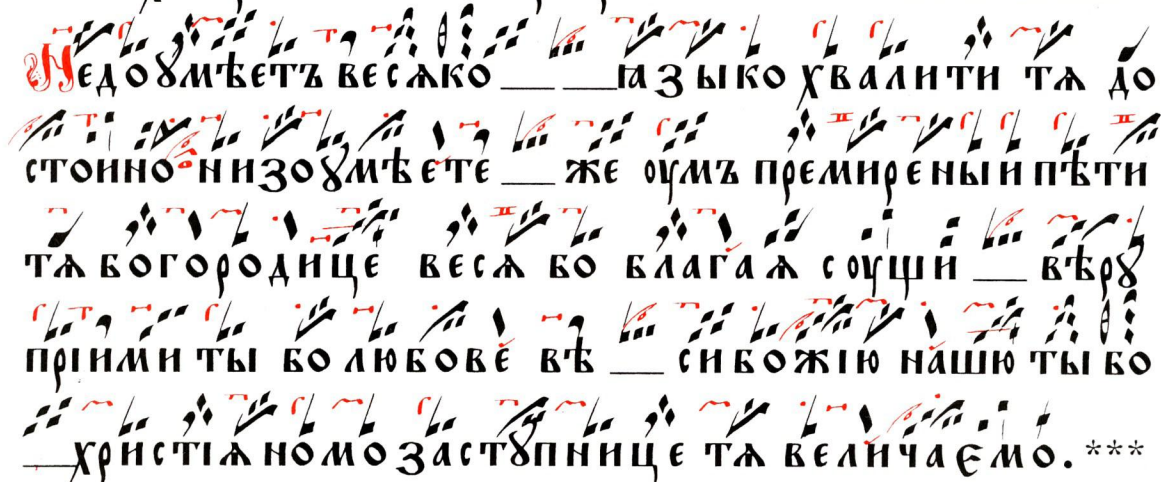 Недоꙋмѣетъ весѧко ꙗзыко хвалити тѧ до
стоино низоꙋмѣете же оумъ премиреныи пѣти
тѧ богородице весѧ бо благаѧ соущи вѣрꙋ
пріими ты бо любове вѣ си божію нашю ты бо
христіѧномо застꙋпнице тѧ величаємо. ***